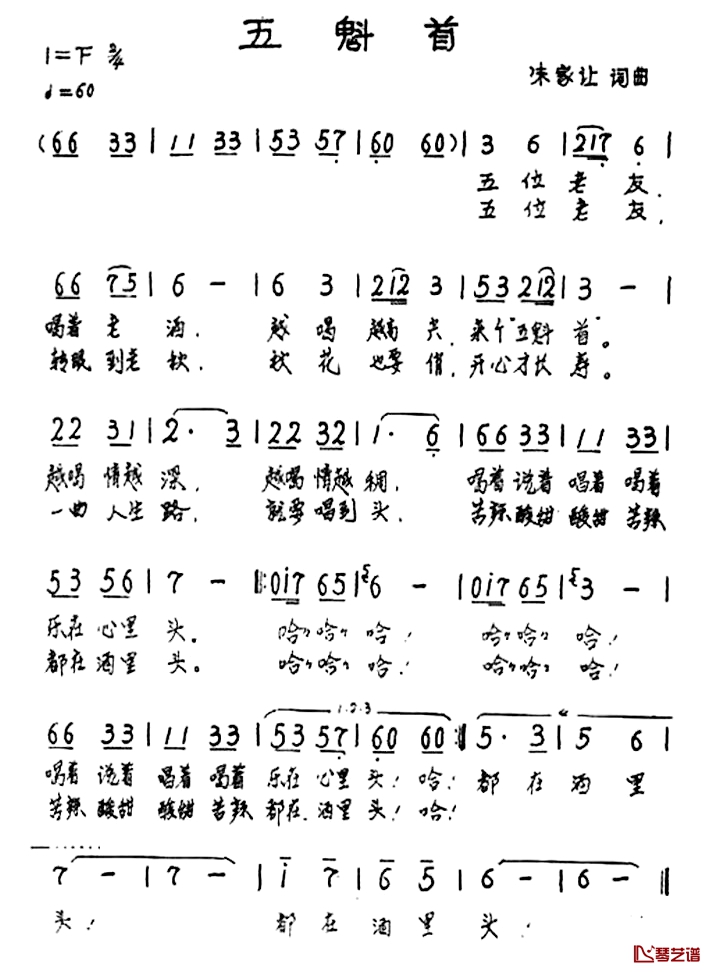 五魁首
1=下 2/4
♩=60
朱家让 词曲
(66 33 | 11 33 | 53 57 | 60 60) | 3 6 | 217 6 |
五位老友,
五位老友,
66 75 | 6 - | 6 3 | 212 3 | 53 212 | 3 - |
喝着老酒, 越喝越高兴,来个"五魁首"。
转眼到老秋, 秋花也要俏,开心才长寿。
22 31 | 2· 3 | 22 32 | 1· 6 | 66 33 | 11 33 |
越喝情越深, 越喝情越稠, 喝着说着唱着喝着
一曲人生路, 就要唱到头, 苦辣酸甜酸甜苦辣
53 56 | 7 - |: 0i7 65 | 6 - | 0i7 65 | 3 - |
乐在心里头。 哈哈哈哈哈! 哈哈哈哈哈!
都在酒里头。 哈哈哈哈哈! 哈哈哈哈哈!
1.2.3
66 33 | 11 33 | 53 57 | 60 60 :| 5· 3 | 5 6 |
喝着说着唱着喝着乐在心里头!哈! 都在酒里
苦辣酸甜酸甜苦辣都在酒里头!哈!
7 - | 7 - | i 7 | 6 5 | 6 - | 6 - ||
头! 都在酒里头!
琴艺谱